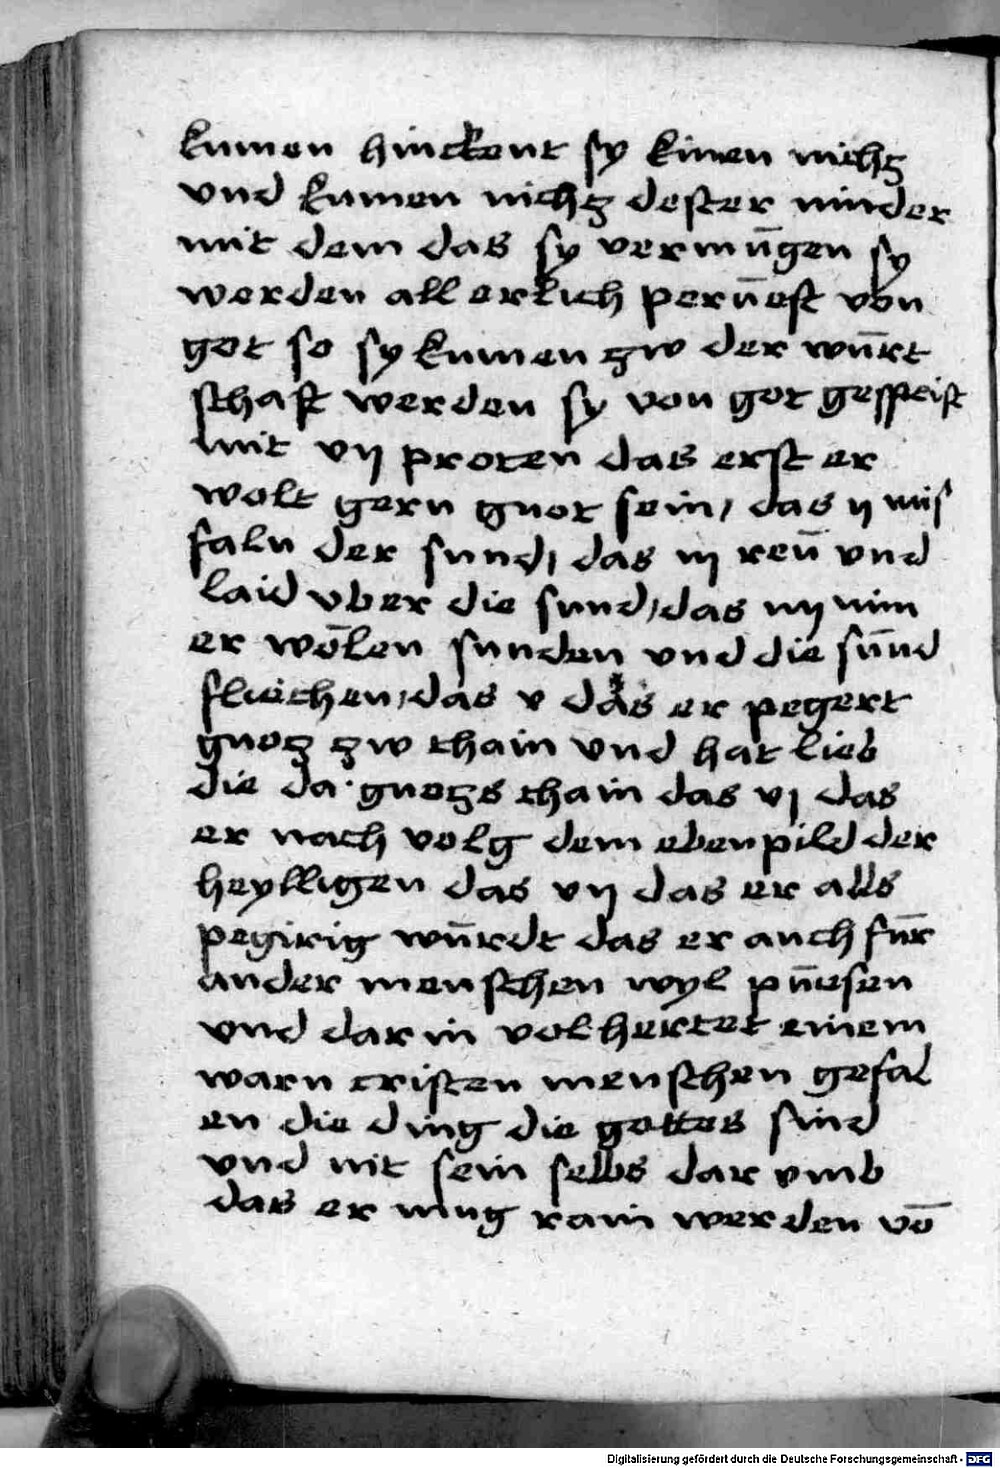 kumen hinckent sy kinen nichz
vnd kumen nichz dester minder
mit dem das sy vermūgen sy
werden all erlich perūeft von
got so sy kumen zw der wūrt
schaft werden sy von got gespeist
mit vij proten das erst er
wolt gern guot sein / das ij mis
faln der sund / das iij reū vnd
laid vber die sund / das iiij nim
er wōlen sunden vnd die sūnd
fliechen / das v das er pegert
guoz zw thain vnd hat lieb
die da guozs thain das vj das
er nach volg dem ebenpild der
heylligen das vij das er alls
pegirig wūrdt das er auch fūr
ander menschen wyl pūesen
vnd dar in volhertet einem
warn cristen menschen gefal
en die ding die gottes sind
vnd nit sein selbs dar vmb
das er mug rain werden vō
Digitalisierung gefördert durch die Deutsche Forschungsgemeinschaft - DFG